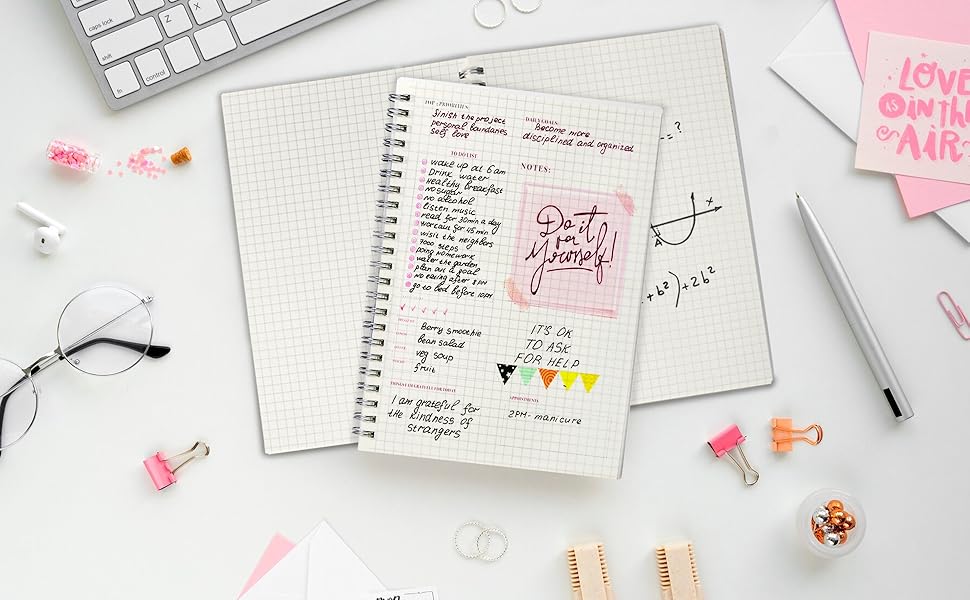 caps lock
Z
X
shift
fn
control
TOP 3 PRIORITIES:
finish the project
personal boundaries
self love
DAILY GOALS:
Become more
disciplined and organized
TO DO LIST
wake up at 6 am
Drink water
Healthy breakfast
no sugar
no alcohol
listen music
read for 30 min a day
workout for 45 min
wisit the neighbors
7000 steps
doing homework
water the garden
plan out a goal
no eating after 8 PM
go to bed before 10 PM
NOTES:
Do it
for
Yourself!
IT'S OK
TO ASK
FOR HELP
Berry smoothie
bean salad
veg soup
fruit
THINGS I AM GRATEFUL FOR TODAY
I am grateful for
the kindness of
strangers
APPOINTMENTS
2PM - manicure
= ?
x
A
+b²)+2b²
LOVE
IS IN THE
AIR